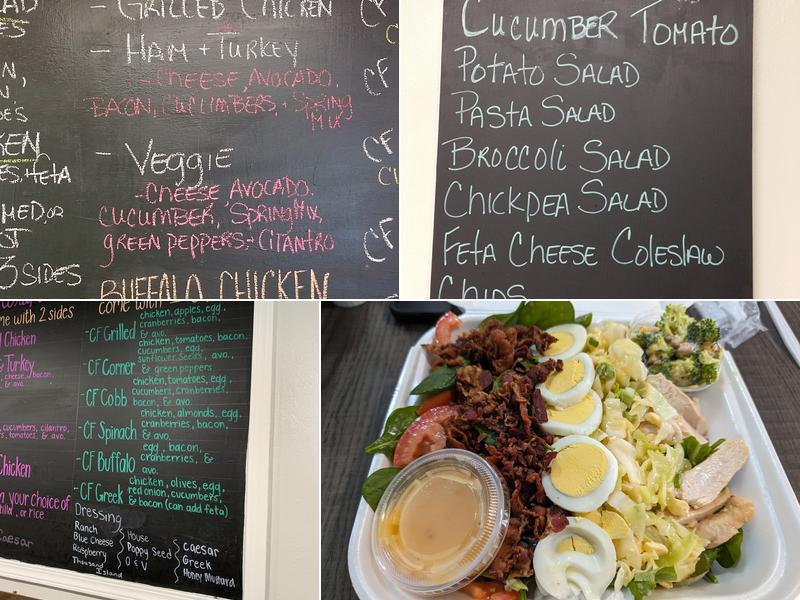 - GRILLED CHICKEN
- HAM + TURKEY
- CHEESE, AVOCADO,
BACON, CUCUMBERS, + SPRING
MIX
- VEGGIE
- CHEESE AVOCADO,
CUCUMBER, SPRINGMIX,
GREEN PEPPERS + CILANTRO
BUFFALO CHICKEN
KEN
ES, FETA
MED, OR
3 SIDES
CF
CF
CF
CUCUMBER TOMATO
POTATO SALAD
PASTA SALAD
BROCCOLI SALAD
CHICKPEA SALAD
FETA CHEESE COLESLAW
CHIPS
me with 2 sides
Chicken
& Turkey
cheese, bacon,
& avo.
cucumbers, cilantro,
s, tomatoes, & avo.
Chicken
n your choice of
illed, or rice
Caesar
come with
- CF Grilled chicken, apples, egg,
cranberries, bacon,
& avo.
- CF Corner chicken, tomatoes, bacon,
cucumbers, egg,
sunflower seeds, avo.,
& green peppers
- CF Cobb chicken, tomatoes, egg,
cucumbers, cranberries,
bacon, & avo.
- CF Spinach chicken, almonds, egg,
cranberries, bacon,
& avo.
- CF Buffalo egg, bacon,
cranberries, &
avo.
- CF Greek chicken, olives, egg,
red onion, cucumbers,
& bacon (can add feta)
Dressing
Ranch
Blue Cheese
Raspberry
Thousand
Island
House
Poppy Seed
O & V
Caesar
Greek
Honey Mustard